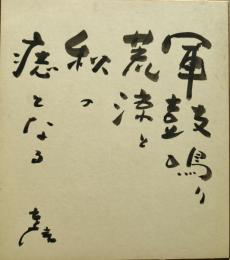 軍鼓鳴り
荒涼と
秋の
痣となる